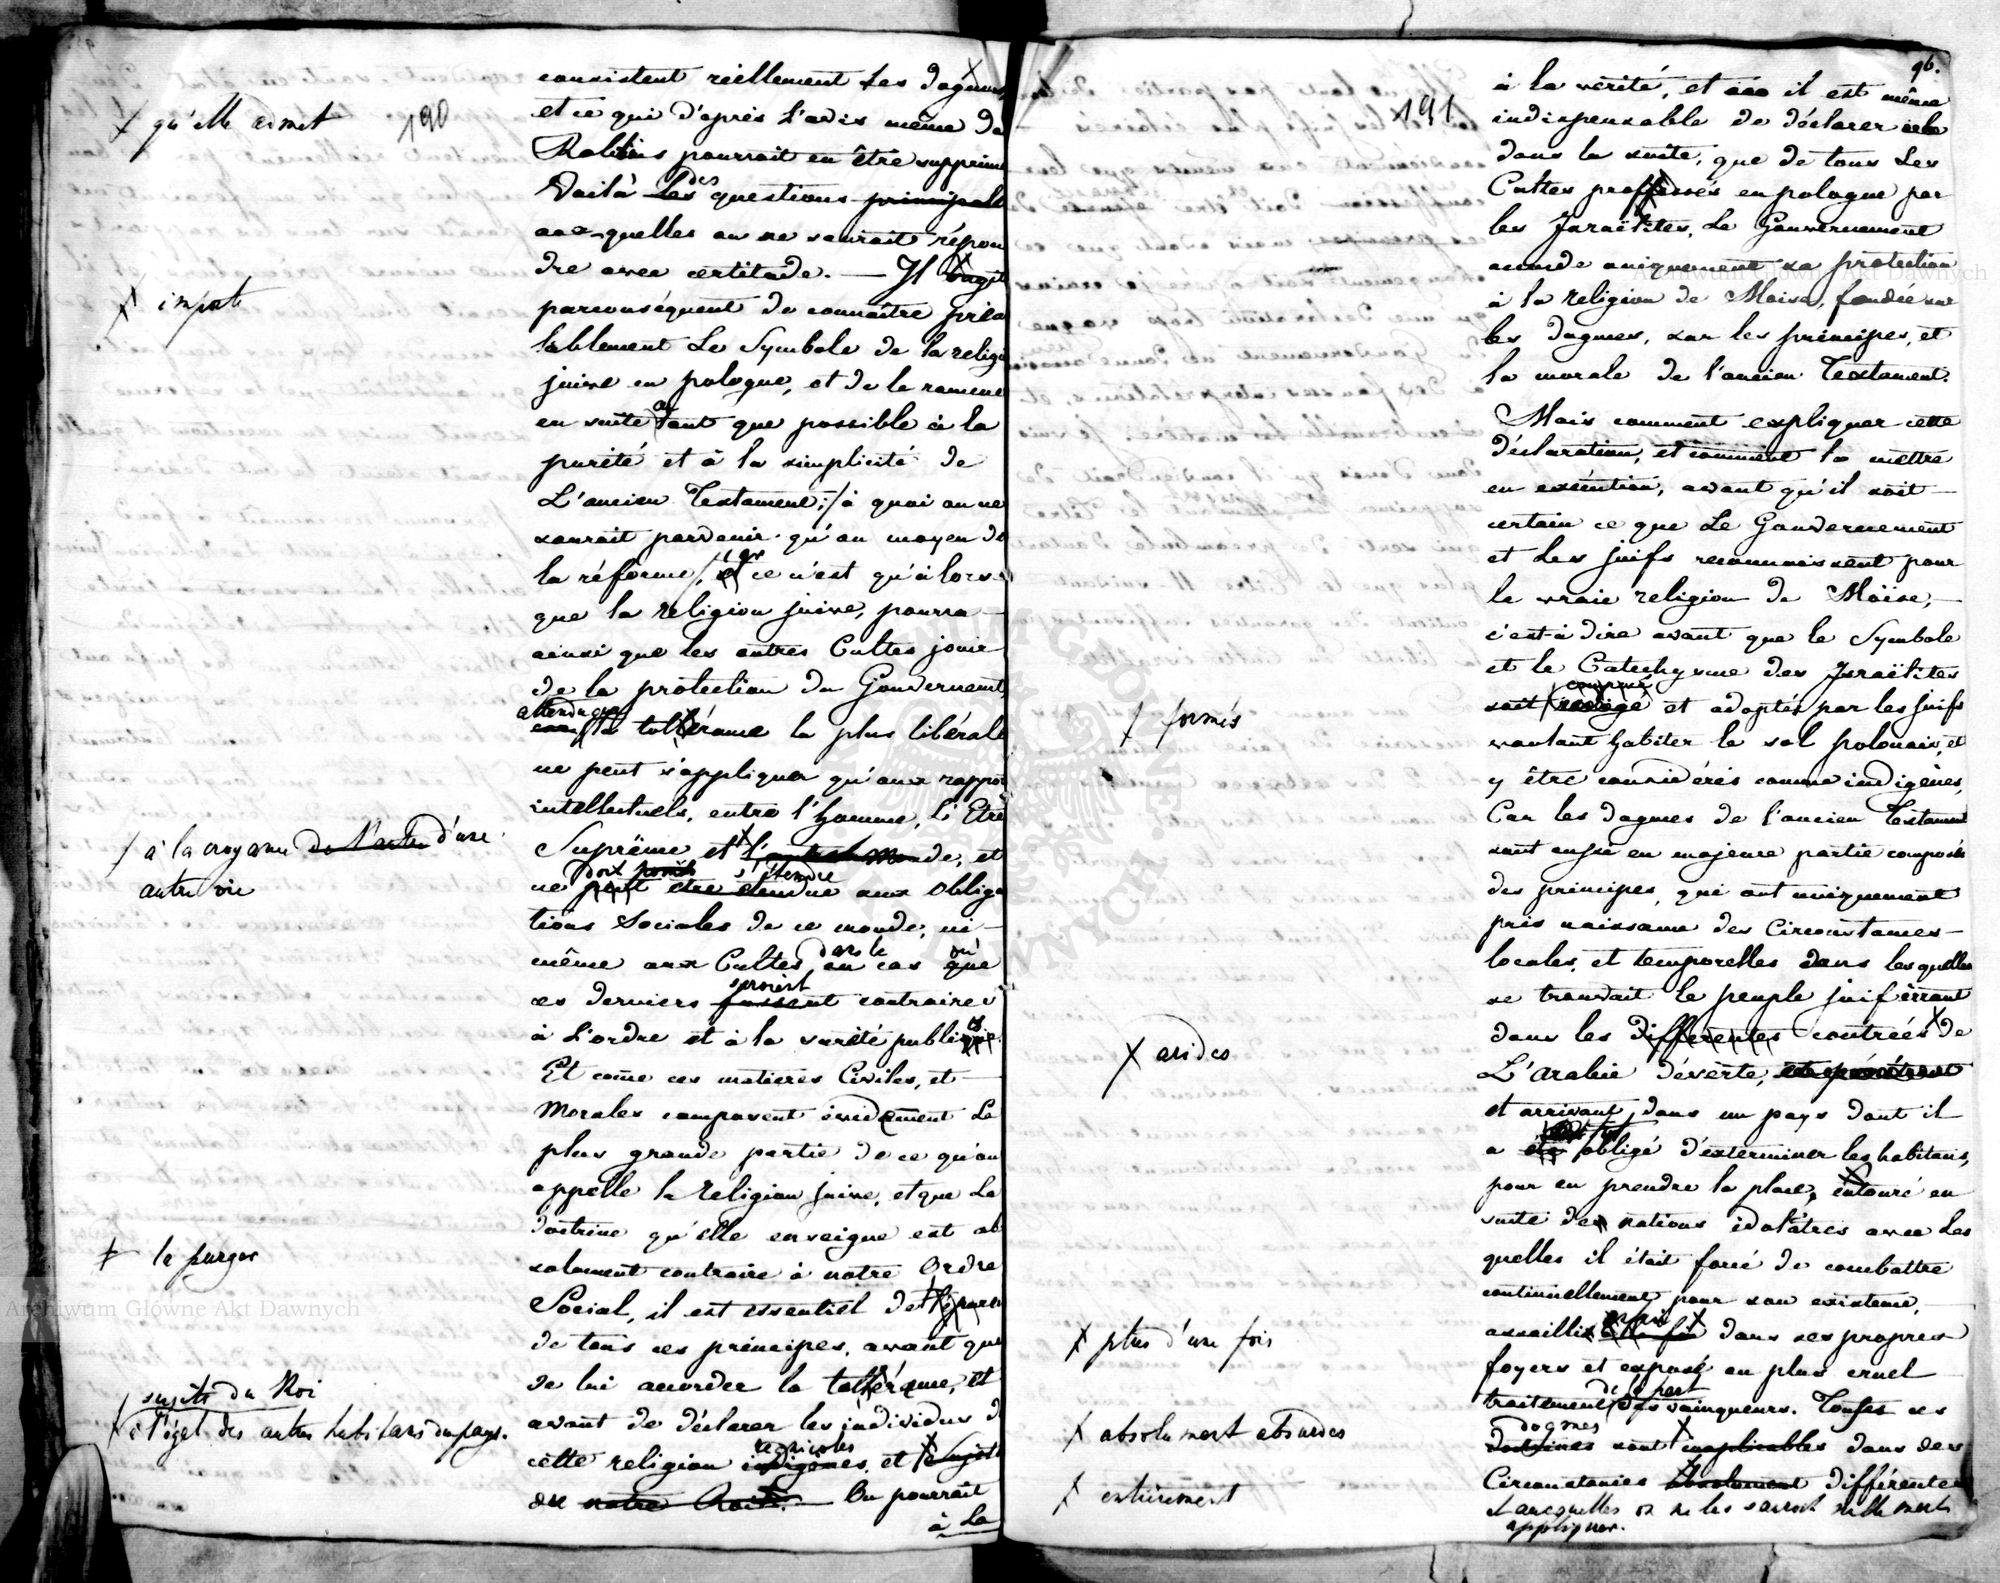 190
consistent réellement les dogmes
X qu'elle admet
et ce qui d'après l'avis même de
Rabbins pourrait en être supprimé
Voilà les des questions principale
aux-quelles on ne saurait répon
dre avec certitude. — Il s'agit
X importe
parconséquent de connaître préa
lablement le Symbole de la religi
juive en pologne, et de le ramene
en suite autant que possible à la
pureté et à la simplicité de
L'ancien Testament; / à quoi on ne
saurait parvenir qu'au moyen de
la réforme /, et car ce n'est qu'alors
que la religion juive, pourra —
ainsi que les autres Cultes jouir
de la protection du Gouvernemt,
attendu que
la tollérance la plus libérale
ne peut s'appliquer qu'aux rappor
intellectuels, entre l'homme, l'Etre
Suprême et l'autre Monde, et
/ à la croyance de l'autre d'une
autre vie
doit point s'étendre
ne peut etre etendue aux obliga
tions Sociales de ce monde, ni —
même aux Cultes, dans le en cas où que
ces derniers seroient fussent contraires
à l'ordre et à la sureté publics
Et come ces matieres Civiles, et —
Morales composent évidement la
plus grande partie de ce qu'on
appelle la religion juive, et que la
doctrine qu'elle enseigne est ab
solument contraire à notre Ordre
Social, il est essentiel de l'épurer
X la purger
de tous ces principes, avant que
de lui accorder la tollérance, et
avant de déclarer les individus d
cette religion regnicoles indigenes, et Sujets
de notre Roi. — On pourrait
sujets du Roi
X à l'égal des autres habitans du pays.
à la
96.
191
à la verité, et il est même
indispensable de déclarer cela
dans la suite, que de tous les
Cultes professés en pologne par
les Israëlites, le Gouvernement
accorde uniquement sa protection
à la religion de Moise, fondée sur
les dogmes, sur les principes, et
la morale de l'ancien Testament.
Mais comment expliquer cette
déclaration, et comment la mettre
en exécution, avant qu'il soit —
certain ce que le Gouvernement
et les juifs reconnaissent pour
la vraie religion de Moïse, —
c'est-à dire avant que le Symbole
et le Catechysme des Israëlites
soit redigé et adoptés par les juifs
X formés
voulant habiter le sol polonais, et
y être considérés comme indigènes,
Car les dogmes de l'ancien Testament
sont aussi en majeure partie composés
des principes, qui ont uniquement
pris naissance des Circonstances —
locales, et temporelles dans lesquelles
se trouvait le peuple juif errant
dans les differentes contrées de
X arides
L'Arabie déserte,
et arrivant, dans un pays dont il
a été obligé d'exterminer les habitans,
pour en prendre la place, entouré en
suite des nations idolâtres avec les
quelles il était forcé de combattre
continuellement pour son existence, —
assailli enfin dans ses propres
X plus d'une fois
foyers et exposé au plus cruel —
traitement de la part des vainqueurs. Toutes ces
dogmes
doctrines sont inapplicables dans des
X absolument absurdes
Circonstances absolument différentes
X entièrement
et auxquelles on ne les sauroit nullement
appliquer.
Archiwum Główne Akt Dawnych
Archiwum Główne Akt Dawnych